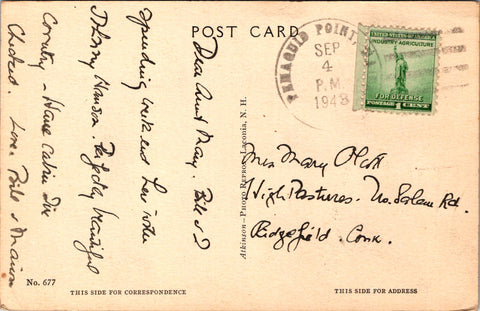 POST CARD
PEMAQUID POINT, ME.
SEP
4
P.M
1948
UNITED STATES OF AMERICA
INDUSTRY AGRICULTURE
FOR DEFENSE
POSTAGE 1 CENT
Dear Aunt May. Bill & I
spending weekend here with
Hanson. Perfectly beautiful
Country - Have Cabin
Love. Bill & Marion
Atkinson-Photo Repros, Laconia, N. H.
Miss Mary Olcott
High Pastures. No. Salem Rd.
Ridgefield. Conn.
No. 677
THIS SIDE FOR CORRESPONDENCE
THIS SIDE FOR ADDRESS